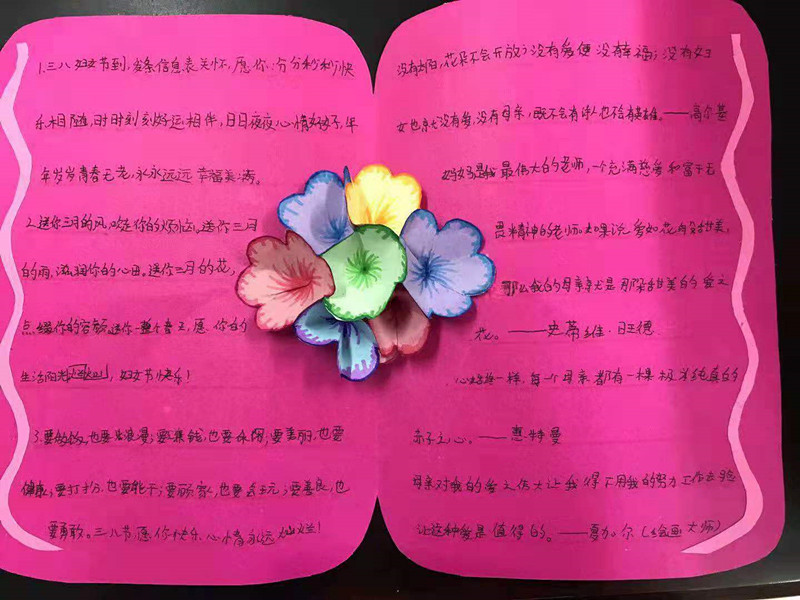 1.三八妇女节到,发条信息表关怀,愿你:分分秒秒快
乐相随,时时刻刻好运相伴,日日夜夜心情好,年
年岁岁青春无老,永永远远幸福美满。
2.送你三月的风,吹走你的烦恼。送你三月
的雨,滋润你的心田。送你三月的花,
点缀你的容颜。送你一整个春天,愿你的
生活阳光灿烂,妇女节快乐!
3.要,也要浪漫;要,也要休闲;要美丽,也要
健康;要打扮,也要能干;要顾家,也要;要善良,也
要勇敢。三八节愿你快乐、心情永远灿烂!
没有太阳,花朵不会开放;没有爱便没有幸福;没有妇
女也就没有爱,没有母亲,既不会有诗人也不会有英雄。——高尔基
妈妈是我最伟大的老师,一个充满慈爱和富于无
畏精神的老师。如果说爱如花般甜美,
那么我的母亲就是那朵甜美的爱之
花。——史蒂维·旺德
一样,每一个母亲都有一棵极为纯真的
赤子之心。——惠特曼
母亲对我的爱之伟大让我得不用我的努力工作去验
证这种爱是值得的。——夏加尔(绘画大师)